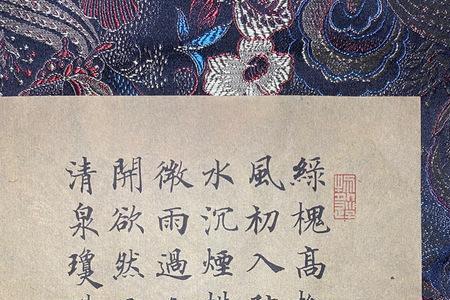 綠槐高
風初入
水沉煙
微雨過
開欲然
清泉瓊